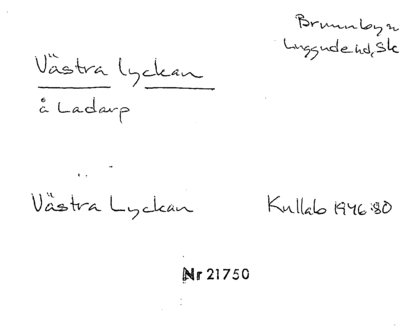 Brunnby sn
Luggude hd, Sk
Västra lyckan
å Ladarp
Västra Lyckan Kullab 1946:80
Nr 21750